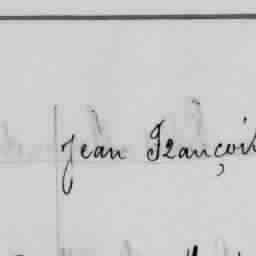 Jean François